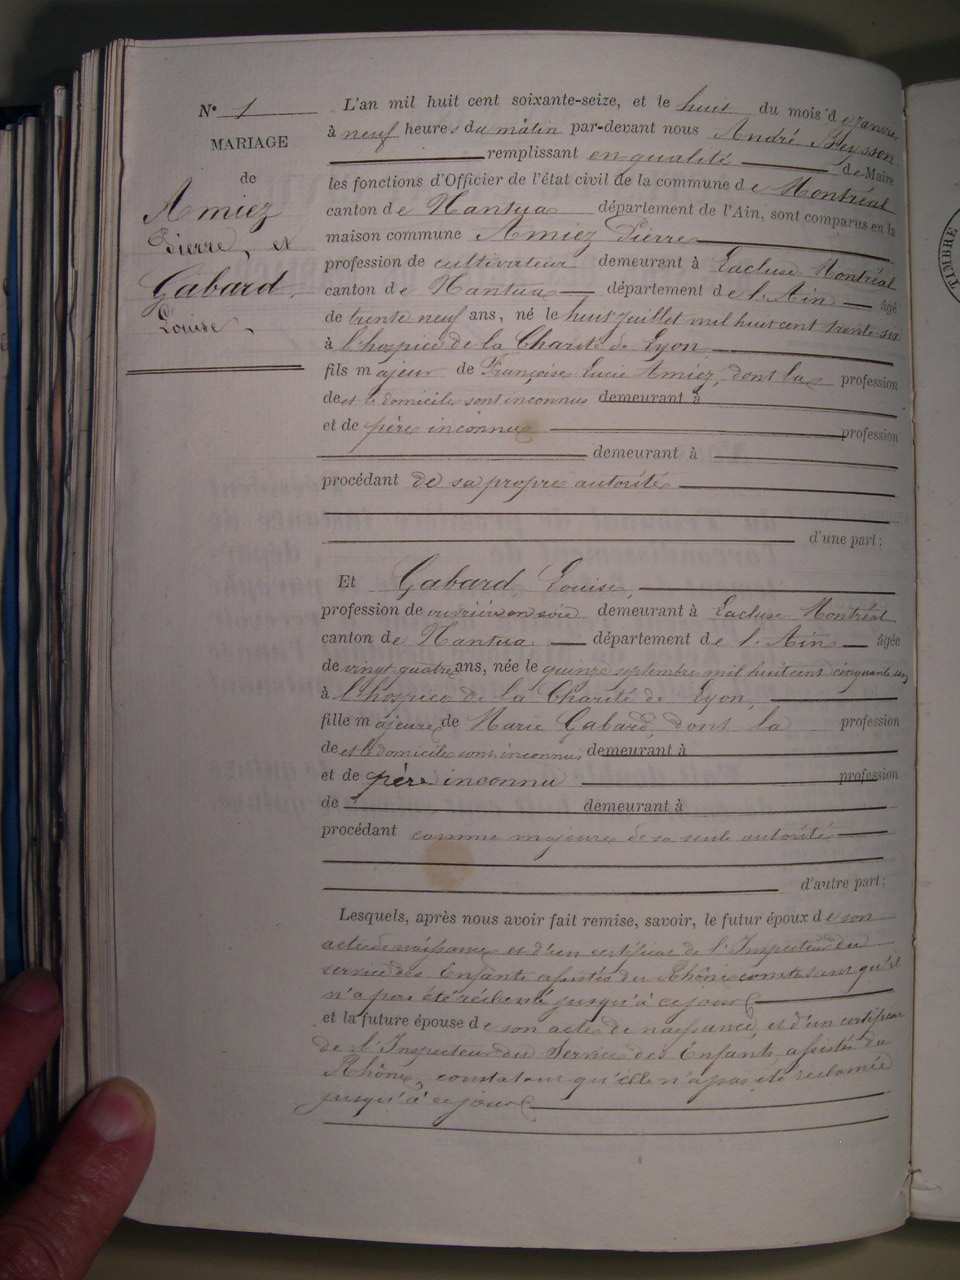 N° 1
MARIAGE
de
Amiez
Pierre, et
Gabard
Louise
L'an mil huit cent soixante-seize, et le huit du mois de Janvier
à neuf heures du matin par-devant nous André Peysson
remplissant en qualité de Maire
les fonctions d'Officier de l'état civil de la commune de Montréal
canton de Nantua département de l'Ain, sont comparus en la
maison commune Amiez Pierre
profession de cultivateur demeurant à Lacluse Montréal
canton de Nantua département de l'Ain âgé
de trente neuf ans, né le huit juillet mil huit cent trente six
à l'hospice de la Charité de Lyon
fils majeur de Françoise Lucie Amiez, dont la profession
de et le domicile sont inconnus demeurant à
et de père inconnu profession
demeurant à
procédant de sa propre autorité
d'une part;
Et Gabard Louise,
profession de ouvrière en soie demeurant à Lacluse Montréal
canton de Nantua département de l'Ain âgée
de vingt quatre ans, née le quinze septembre mil huit cent cinquante un,
à l'hospice de la Charité de Lyon,
fille majeure de Marie Gabard, dont la profession
de et le domicile sont inconnus demeurant à
et de père inconnu profession
de demeurant à
procédant comme majeure de sa seule autorité
d'autre part;
Lesquels, après nous avoir fait remise, savoir, le futur époux de son
acte de naissance et d'un certificat de l'Inspecteur du
service des Enfants assistés du Rhône constatant qu'il
n'a pas été réclamé jusqu'à ce jour
et la future épouse de son acte de naissance, et d'un certificat
de l'Inspecteur du Service des Enfants assistés du
Rhône, constatant qu'elle n'a pas été réclamée
jusqu'à ce jour
TIMBRE